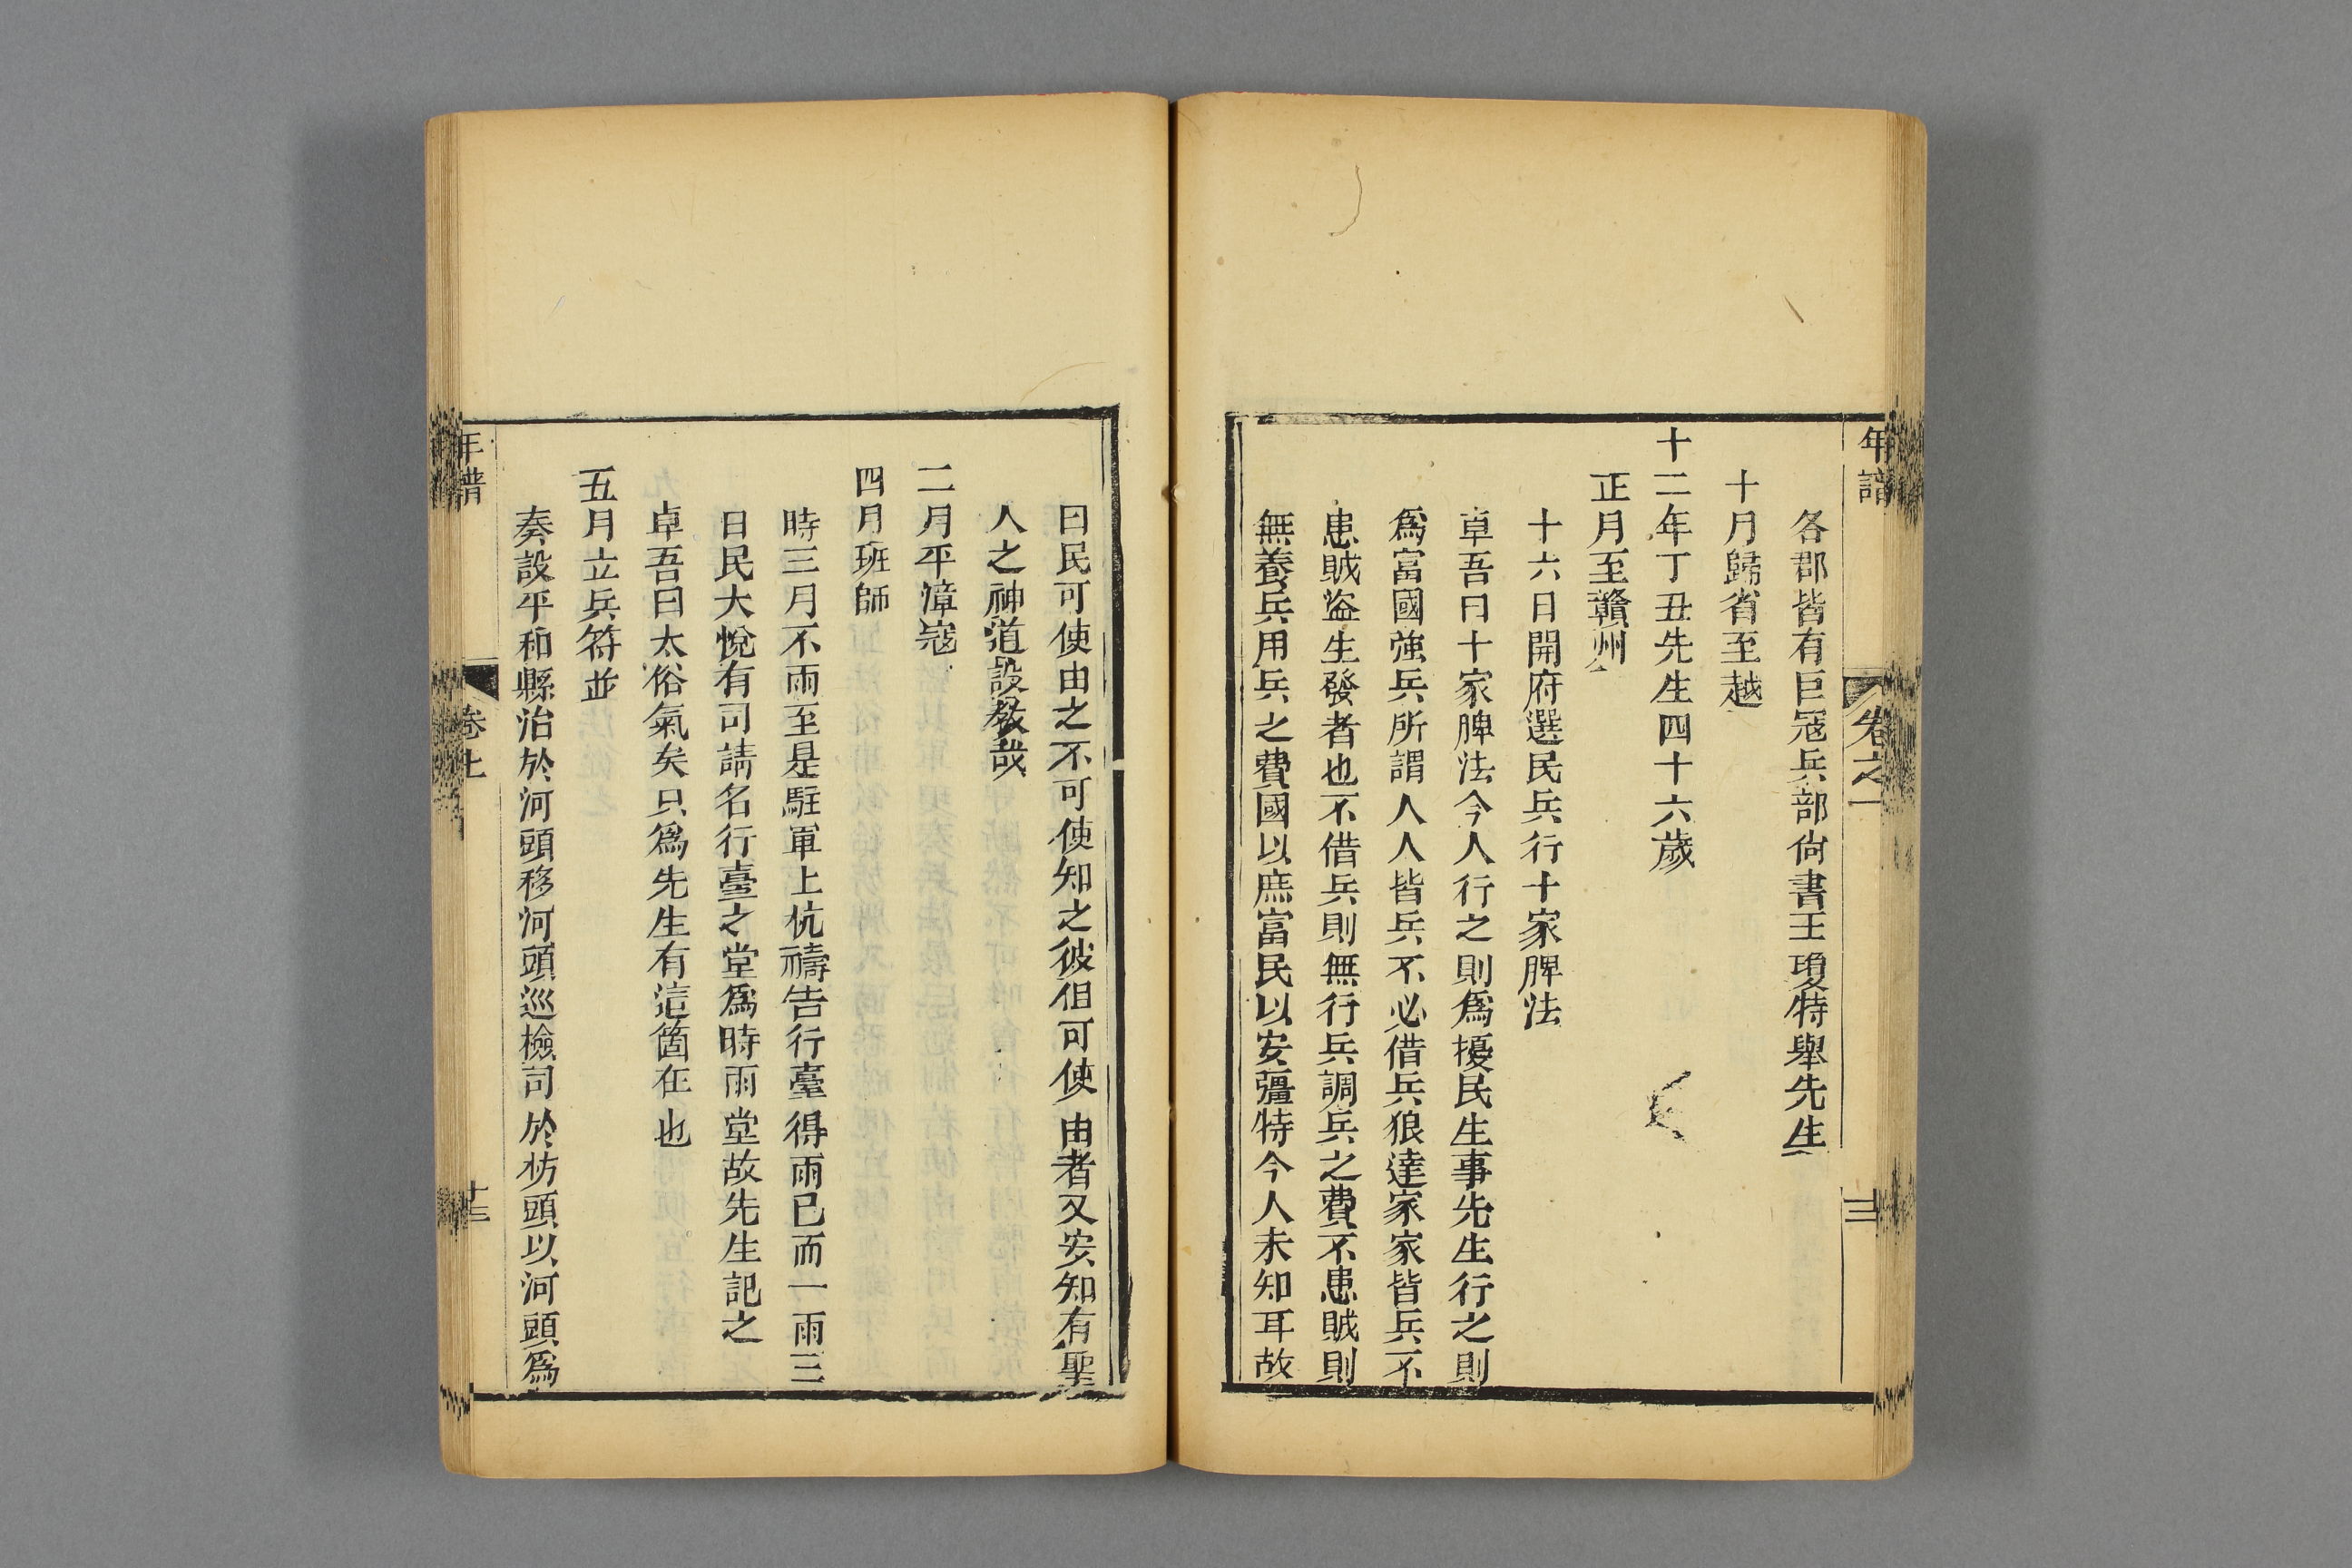 年譜 卷之一 十二
各郡皆有巨寇兵部尙書王瓊特舉先生
十月歸省至越
十二年丁丑先生四十六歲
正月至贛州
十六日開府選民兵行十家牌法
卓吾曰十家牌法今人行之則爲擾民生事先生行之則
爲富國強兵所謂人人皆兵不必借兵狼達家家皆兵不
患賊盜生發者也不借兵則無行兵調兵之費不患賊則
無養兵用兵之費國以庶富民以安彊特今人未知耳故
曰民可使由之不可使知之彼但可使由者又安知有聖
人之神道設敎哉
二月平漳寇
四月班師
時三月不雨至是駐軍上杭禱告行臺得雨已而一雨三
日民大悅有司請名行臺之堂爲時雨堂故先生記之
卓吾曰太俗氣矣只爲先生有這箇在也
五月立兵符並
奏設平和縣治於河頭移河頭巡檢司於枋頭以河頭爲
年譜 卷上 十三